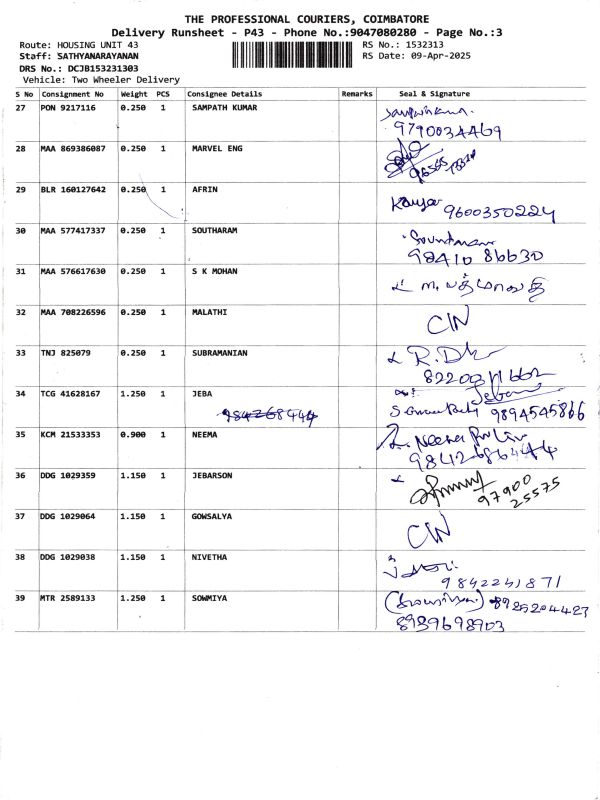 THE PROFESSIONAL COURIERS, COIMBATORE
Delivery Runsheet - P43 - Phone No.:9047080280 - Page No.:3
Route: HOUSING UNIT 43 RS No.: 1532313
Staff: SATHYANARAYANAN RS Date: 09-Apr-2025
DRS No.: DCJB153231303
Vehicle: Two Wheeler Delivery
S No Consignment No Weight PCS Consignee Details Remarks Seal & Signature
27 PON 9217116 0.250 1 SAMPATH KUMAR
9790034469
28 MAA 869386087 0.250 1 MARVEL ENG
29 BLR 160127642 0.250 1 AFRIN
9600350224
30 MAA 577417337 0.250 1 SOUTHARAM
98410 86630
31 MAA 576617630 0.250 1 S K MOHAN
m. பத்மாவதி
32 MAA 708226596 0.250 1 MALATHI
CIN
33 TNJ 825079 0.250 1 SUBRAMANIAN
34 TCG 41628167 1.250 1 JEBA
9894545866
35 KCM 21533353 0.900 1 NEEMA
9842686444
36 DDG 1029359 1.150 1 JEBARSON
97900
25575
37 DDG 1029064 1.150 1 GOWSALYA
CIN
38 DDG 1029038 1.150 1 NIVETHA
39 MTR 2589133 1.250 1 SOWMIYA
8925204427
8939698903